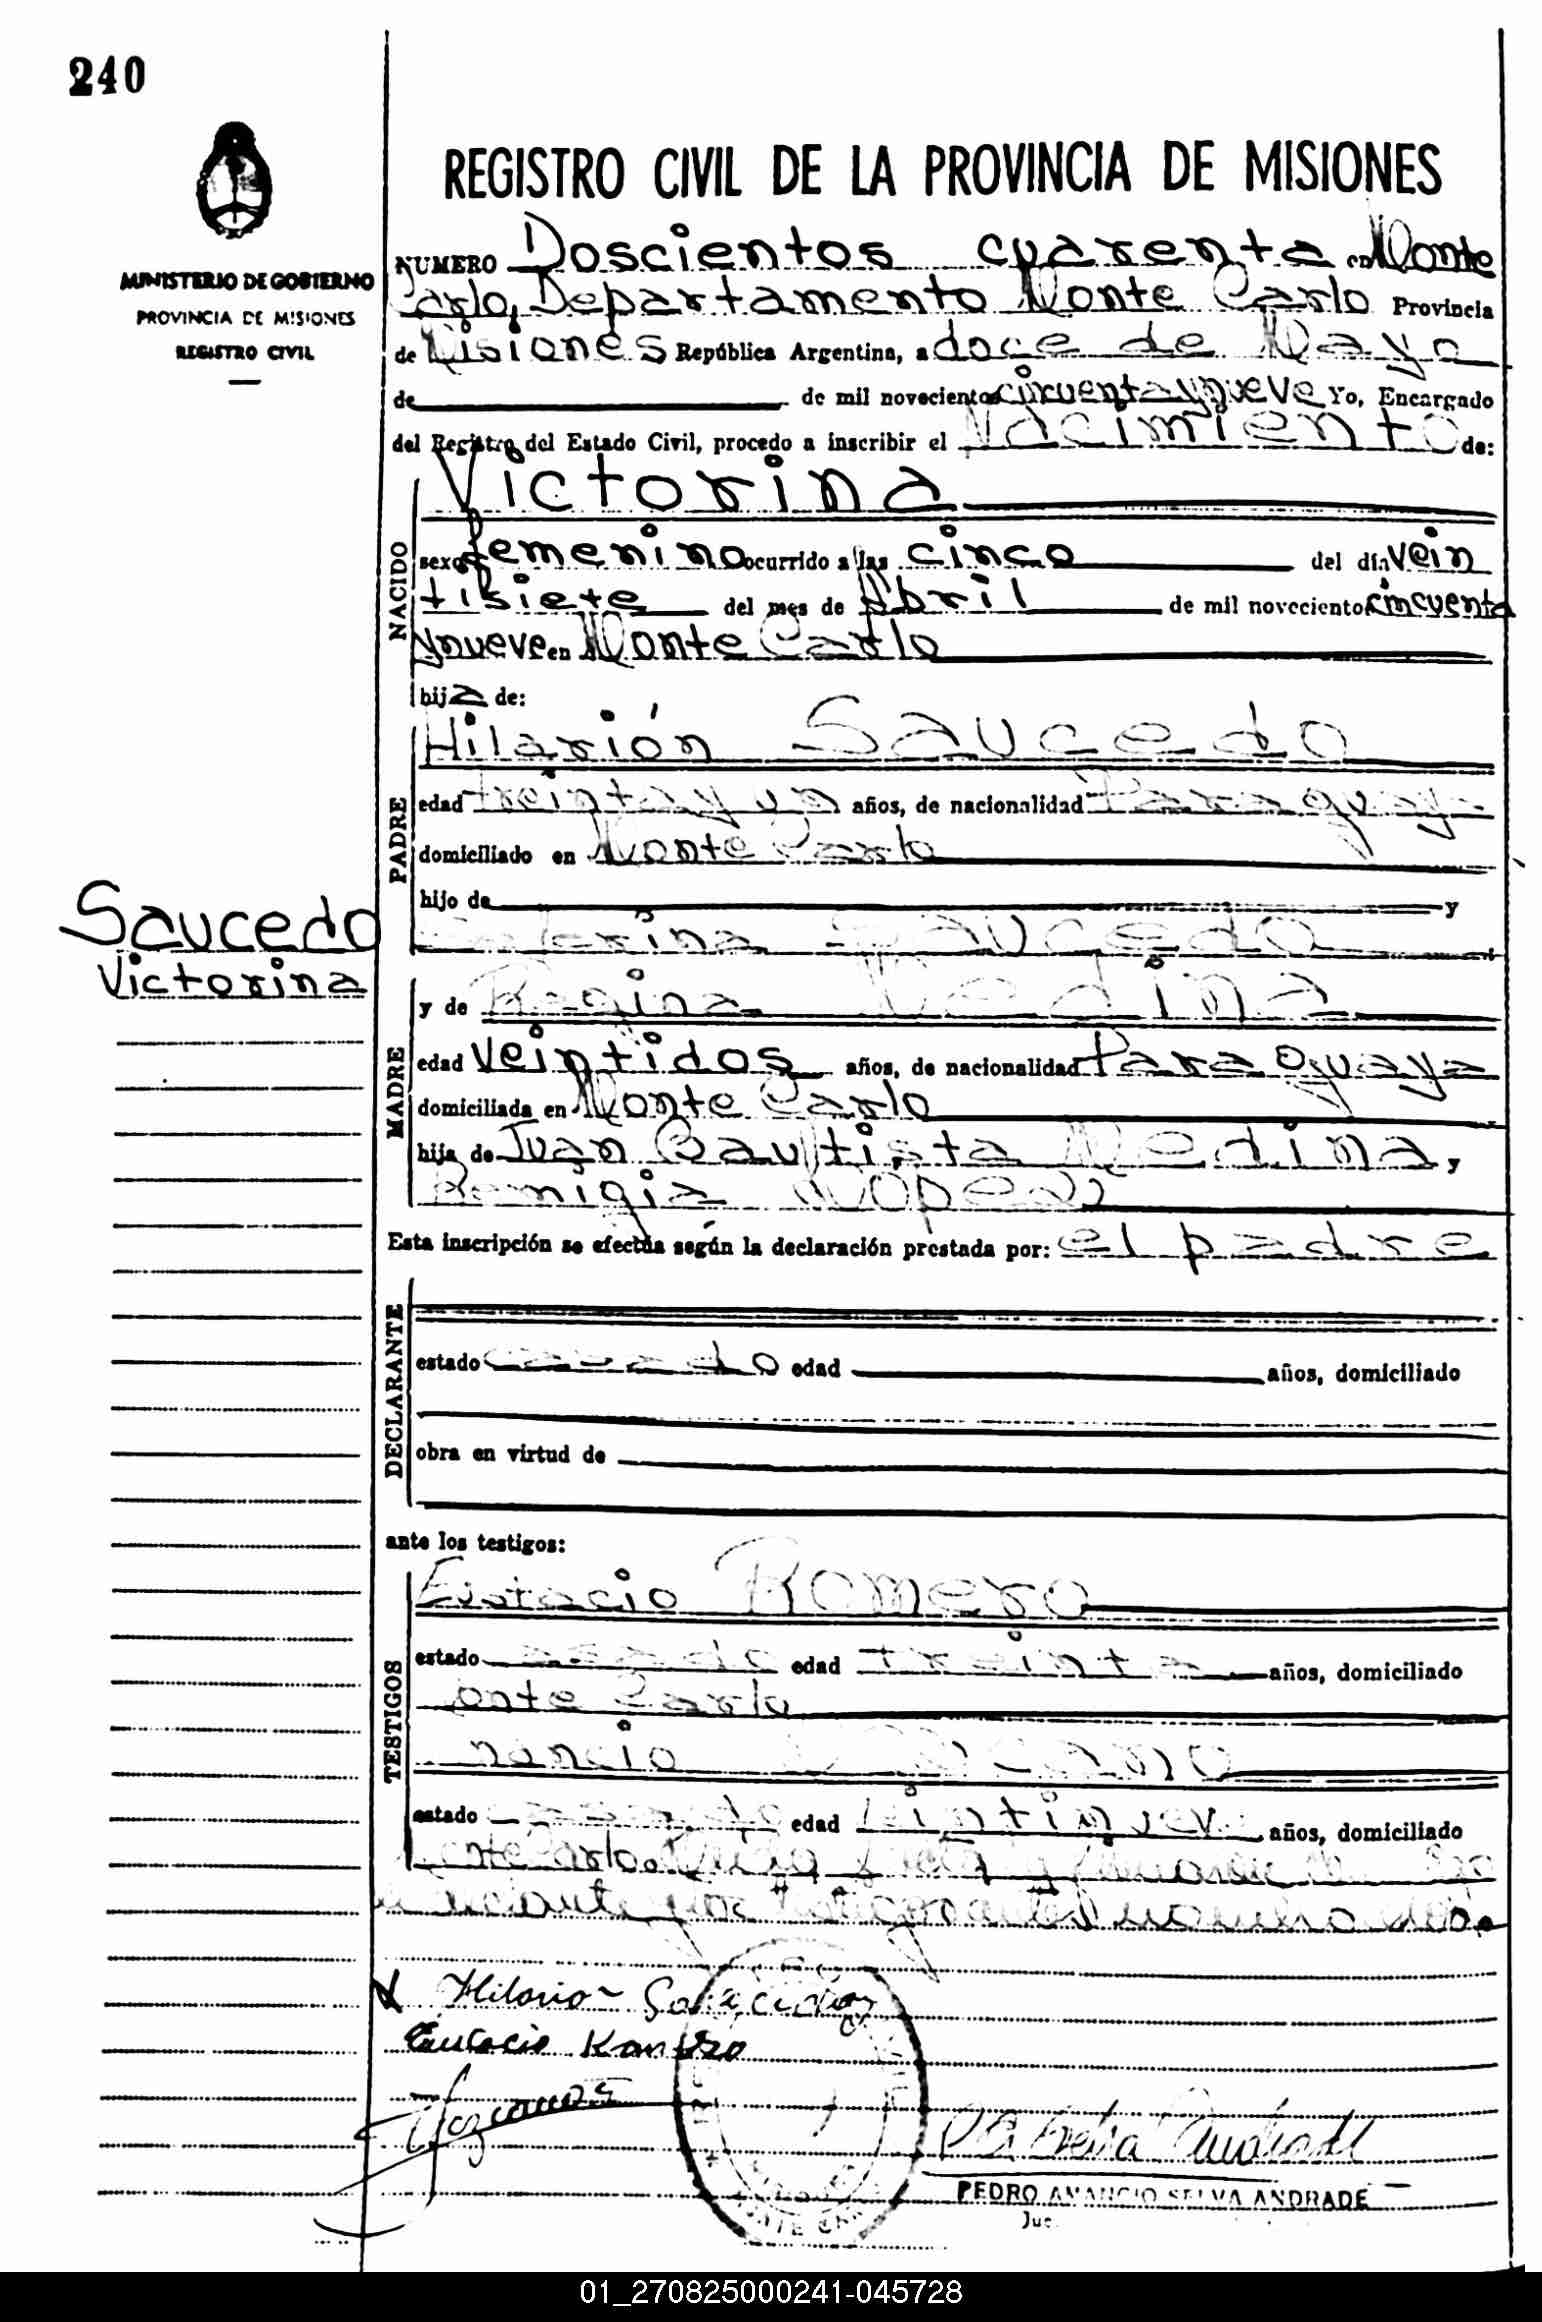 240
MINISTERIO DE GOBIERNO
PROVINCIA DE MISIONES
REGISTRO CIVIL
REGISTRO CIVIL DE LA PROVINCIA DE MISIONES
NUMERO Doscientos cuarenta en Monte
Carlo, Departamento Monte Carlo Provincia
de Misiones República Argentina, a doce de Mayo
de de mil novecientos cincuenta y nueve Yo, Encargado
del Registro del Estado Civil, procedo a inscribir el Nacimiento de:
NACIDO
Victorina
sexo femenino ocurrido a las cinco del día vein
tisiete del mes de Abril de mil novecientos cincuenta
y nueve en Monte Carlo
hija de:
PADRE
Hilarión Saucedo
edad treinta y un años, de nacionalidad Paraguaya
domiciliado en Monte Carlo
hijo de y
Saucedo
Saucedo
Victorina
MADRE
y de Regina Medina
edad veintidos años, de nacionalidad Paraguaya
domiciliada en Monte Carlo
hija de Juan Bautista Medina y
Remigia Lopez
Esta inscripción se efectúa según la declaración prestada por: el padre
DECLARANTE
estado casado edad años, domiciliado
obra en virtud de
ante los testigos:
TESTIGOS
Eustacio Romero
estado casado edad treinta años, domiciliado
onte Carlo
nancio
estado casado edad eintinuev años, domiciliado
onte Carlo.
Hilario Saucedo
Romero
PEDRO AMANCIO SELVA ANDRADE
Jue
01_270825000241-045728